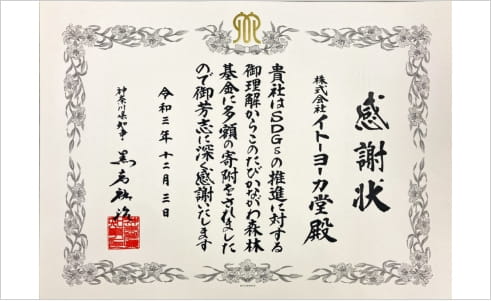 感謝状
株式会社イトーヨーカ堂殿
貴社はSDGsの推進に対する
御理解からこのたびかながわ森林
基金に多額の寄附をされました
ので御芳志に深く感謝いたします
令和三年十二月三日
神奈川県知事 黒岩祐治